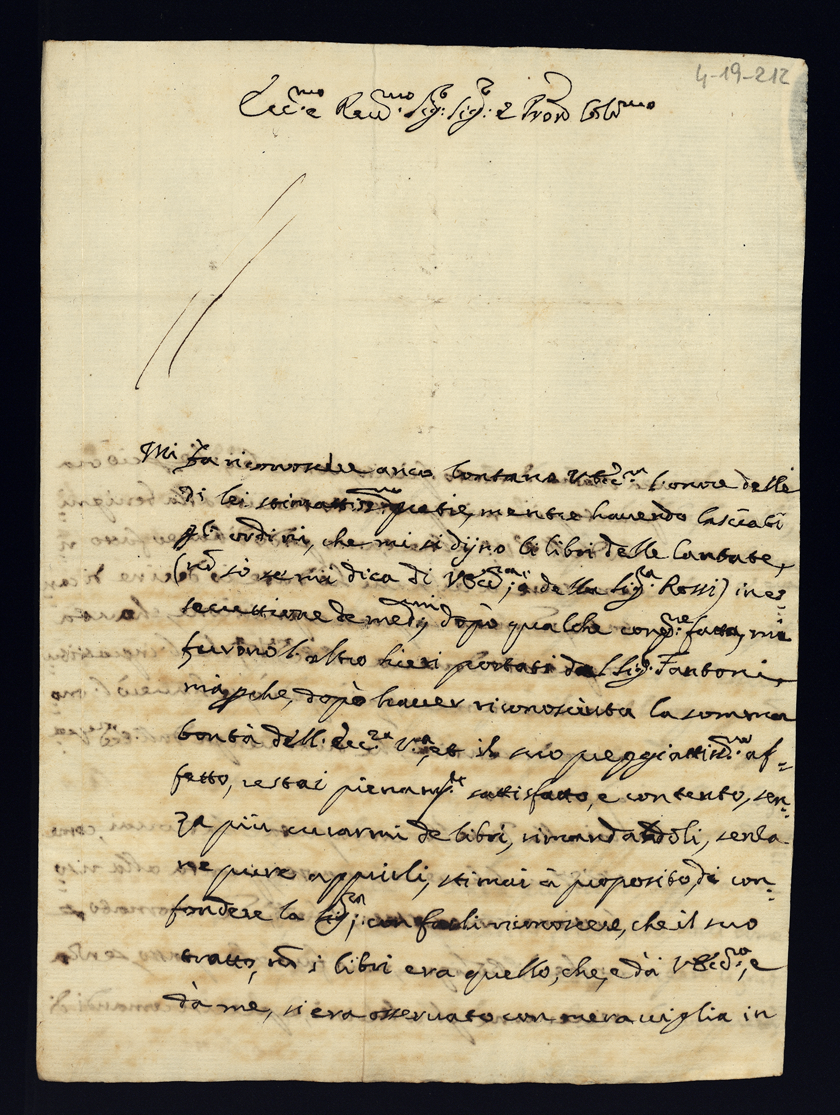 4-19-212
Ecc.mo e Reu.mo Sig: Sig: e Pron Col.mo
Mi fa riconoscere anco lontano V. Ecc.za l'onore delle
di lei stimattis.me gratie, mentre hauendo lasciati
gl'ordini, che mi si dijno li libri delle Cantate,
(nō sò se mi dica di V. Ecc.za, ò della Sig.ra Rossi) in es:
secuttione de med.mi, dopò qualche fatta, mi
furono l'altro hieri portati dal Sig. Fantoni,
mà, pche, dopò hauer riconosciuta la somma
bontà dell'Ecc.za V.ra, et il suo preggiattiss.mo af-
fetto, restai pienam.te sattisfatto, e contento, sen-
za più curarmi de libri, rimandandoli, senza
ne pure apprirli, stimai à proposito, di con-
fondere la Sig.ra, con farli riconoscere, che il suo
tratto, nō i libri era quello, che, e dà V. Ecc.za, e
dà me, si era osseruato con merauiglia in